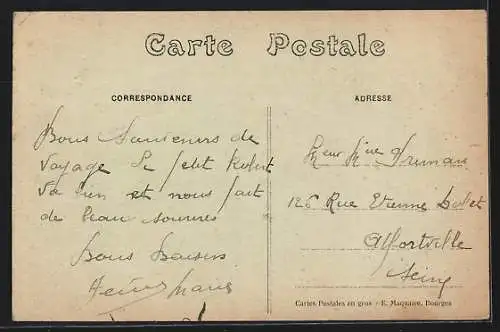 Carte Postale
CORRESPONDANCE
ADRESSE
Bons Souvenirs de
voyage Le petit Robert
va bien et nous fait
de beau sourires
Bons Baisers
Marie
Mr Mme Truman
126 Rue Etienne Dolet
Alfortville
Seine
Cartes Postales en gros - E. Maquaire, Bourges